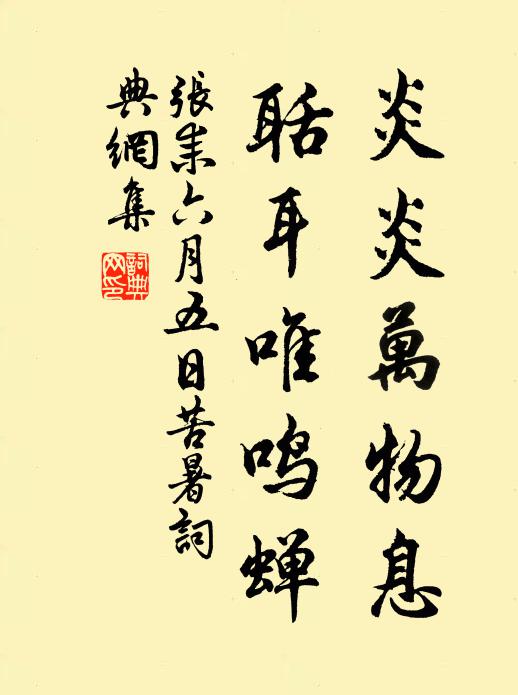 炎炎萬物息
聒耳唯鸣蝉
張耒六月五日苦暑詞
典網集
詞典网印